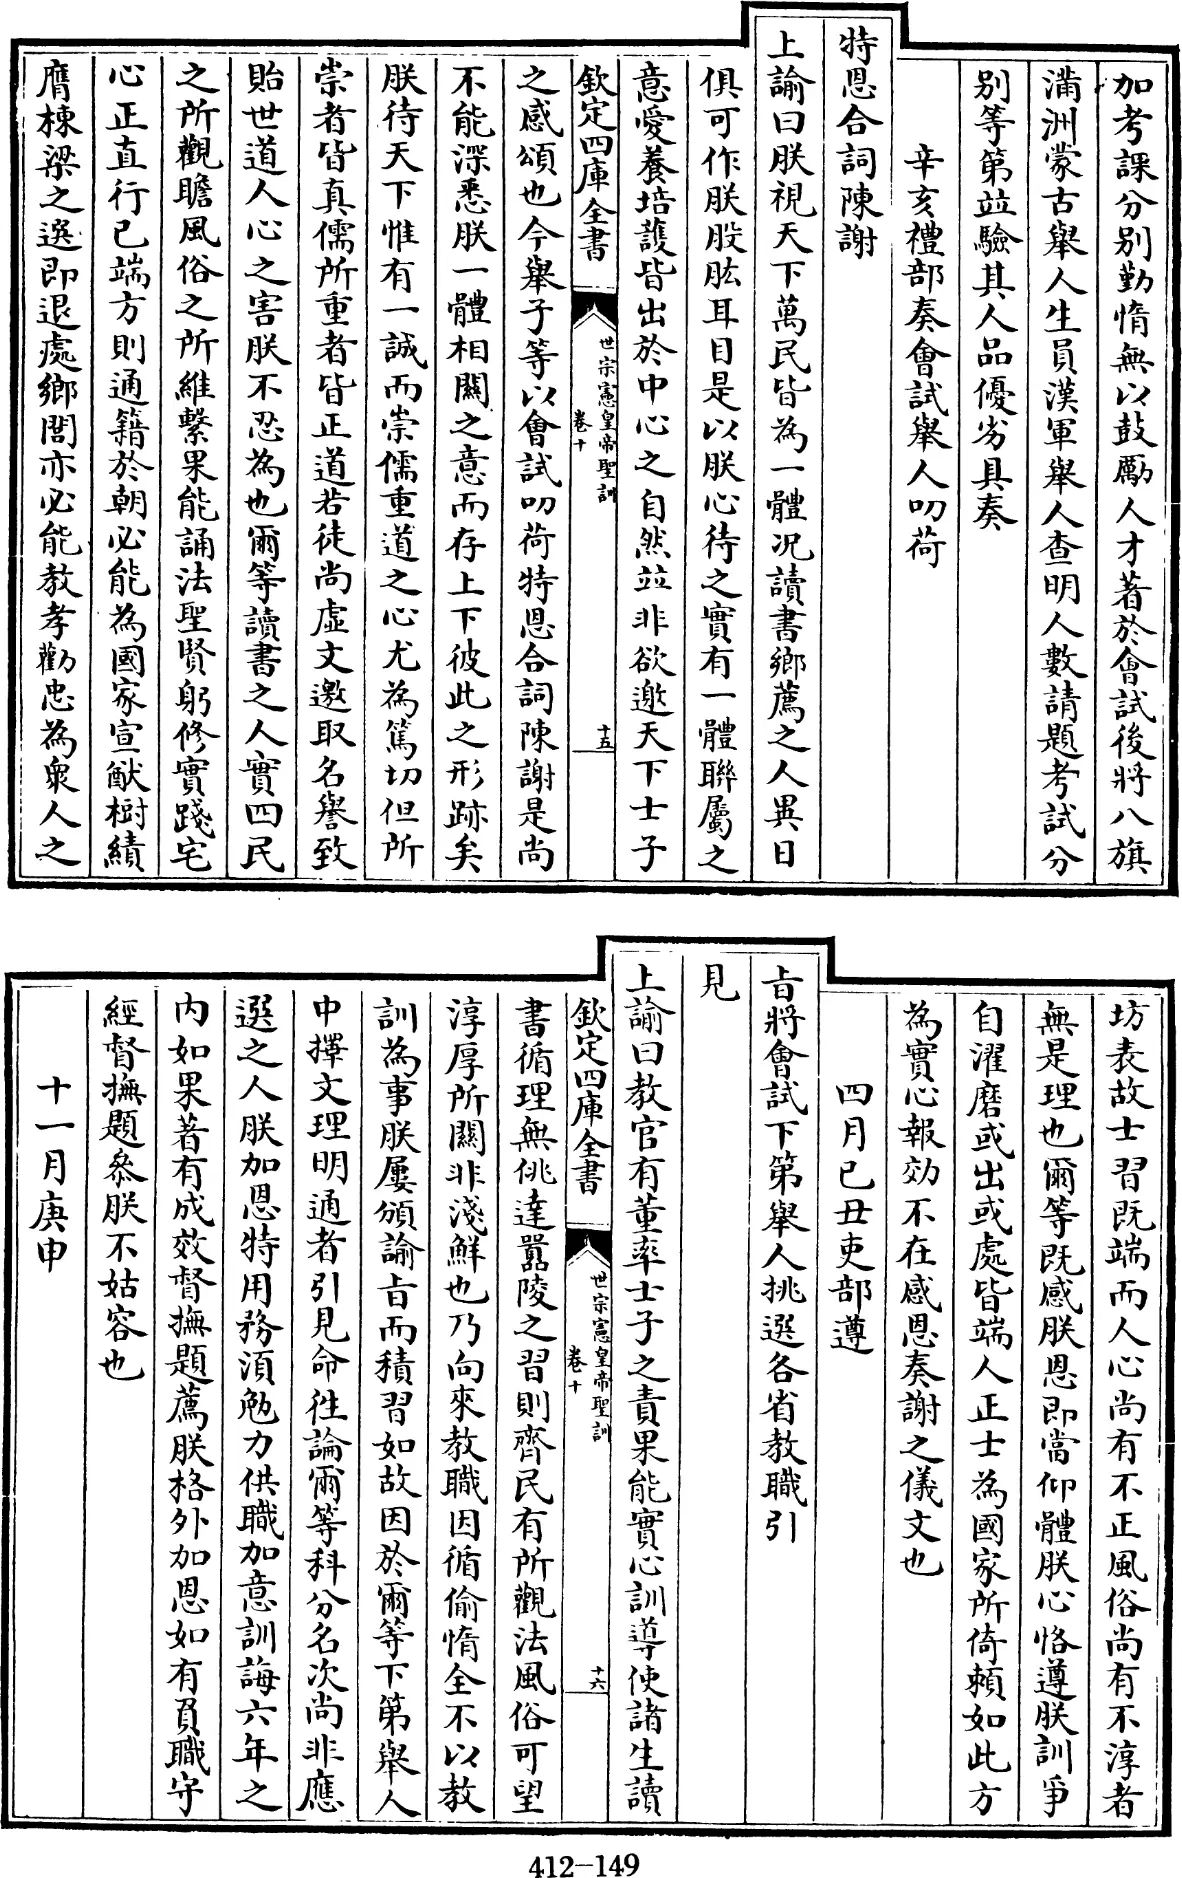 加考課分别勤惰無以鼓勵人才著於會試後將八旗
滿洲蒙古舉人生員漢軍舉人查明人數請題考試分
别等第並驗其人品優劣具奏
辛亥禮部奏會試舉人叨荷
特恩合詞陳謝
上諭曰朕視天下萬民皆為一體况讀書鄉薦之人異日
俱可作朕股肱耳目是以朕心待之實有一體聯屬之
意愛養培護皆出於中心之自然並非欲邀天下士子
欽定四庫全書
世宗憲皇帝聖訓
卷十
十五
之感頌也今舉子等以會試叨荷特恩合詞陳謝是尚
不能深悉朕一體相關之意而存上下彼此之形跡矣
朕待天下惟有一誠而崇儒重道之心尤為篤切但所
崇者皆真儒所重者皆正道若徒尚虛文邀取名譽致
貽世道人心之害朕不忍為也爾等讀書之人實四民
之所觀瞻風俗之所維繫果能誦法聖賢躬修實踐宅
心正直行已端方則通籍於朝必能為國家宣猷樹績
膺棟梁之選即退處鄉閭亦必能教孝勸忠為衆人之
坊表故士習既端而人心尚有不正風俗尚有不淳者
無是理也爾等既感朕恩即當仰體朕心恪遵朕訓爭
自濯磨或出或處皆端人正士為國家所倚賴如此方
為實心報効不在感恩奏謝之儀文也
四月已丑吏部遵
旨將會試下第舉人挑選各省教職引
見
上諭曰教官有董率士子之責果能實心訓導使諸生讀
欽定四庫全書
世宗憲皇帝聖訓
卷十
十六
書循理無佻達囂陵之習則齊民有所觀法風俗可望
淳厚所關非淺鮮也乃向來教職因循偷惰全不以教
訓為事朕屢頒諭旨而積習如故因於爾等下第舉人
中擇文理明通者引見命往論爾等科分名次尚非應
選之人朕加恩特用務湏勉力供職加意訓誨六年之
内如果著有成效督撫題薦朕格外加恩如有負職守
經督撫題叅朕不姑容也
十一月庚申
412-149